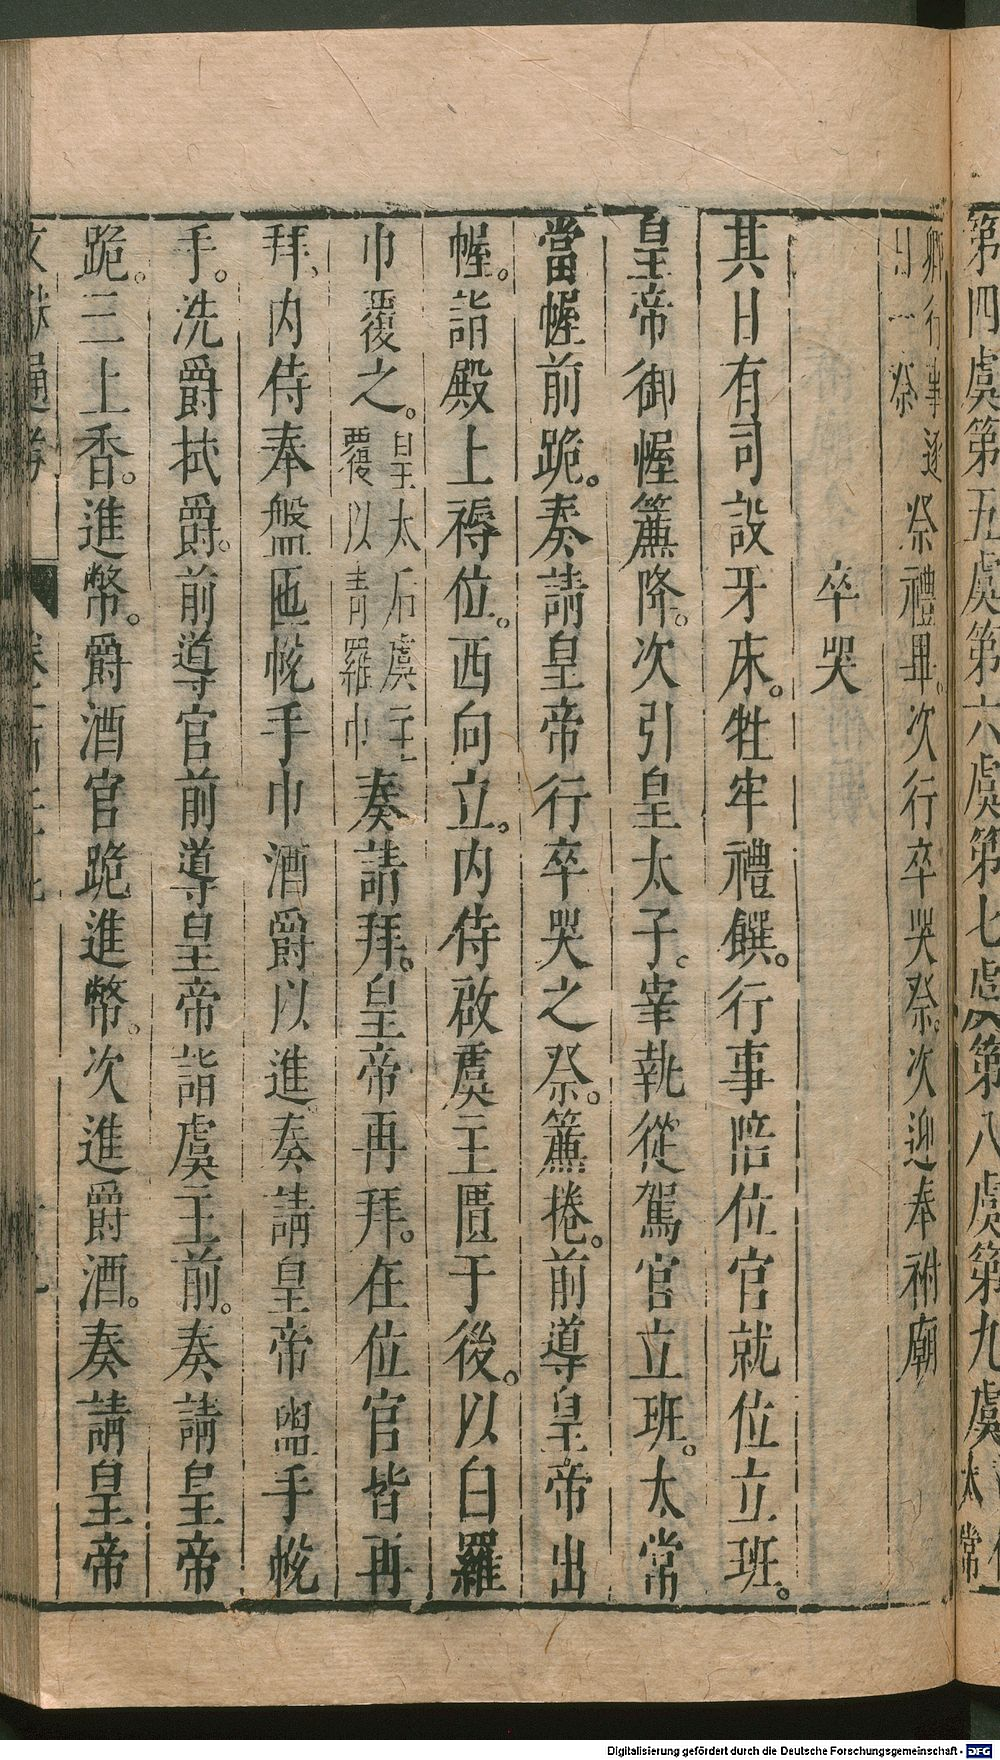 第四虞第五虞第六虞第七虞第八虞第九虞太常
卿行事逐日一祭祭禮畢。次行卒哭祭。次迎奉祔廟
卒哭
其日有司設牙床。牲牢禮饌。行事陪位官就位立班。
皇帝御幄簾降。次引皇太子。宰執從駕官立班。太常
當幄前跪。奏請皇帝行卒哭之祭。簾捲。前導皇帝出
幄。詣殿上褥位。西向立。内侍啟虞主匱于後。以白羅
巾覆之。皇太后虞主覆以青羅巾奏請拜。皇帝再拜。在位官皆再
拜、内侍奉盤匜帨手巾酒爵以進奏請皇帝盥手帨
手。洗爵拭爵。前導官前導皇帝詣虞主前。奏請皇帝
跪。三上香。進幣。爵酒官跪進幣。次進爵酒。奏請皇帝
文獻通考
Digitalisierung gefördert durch die Deutsche Forschungsgemeinschaft - DFG